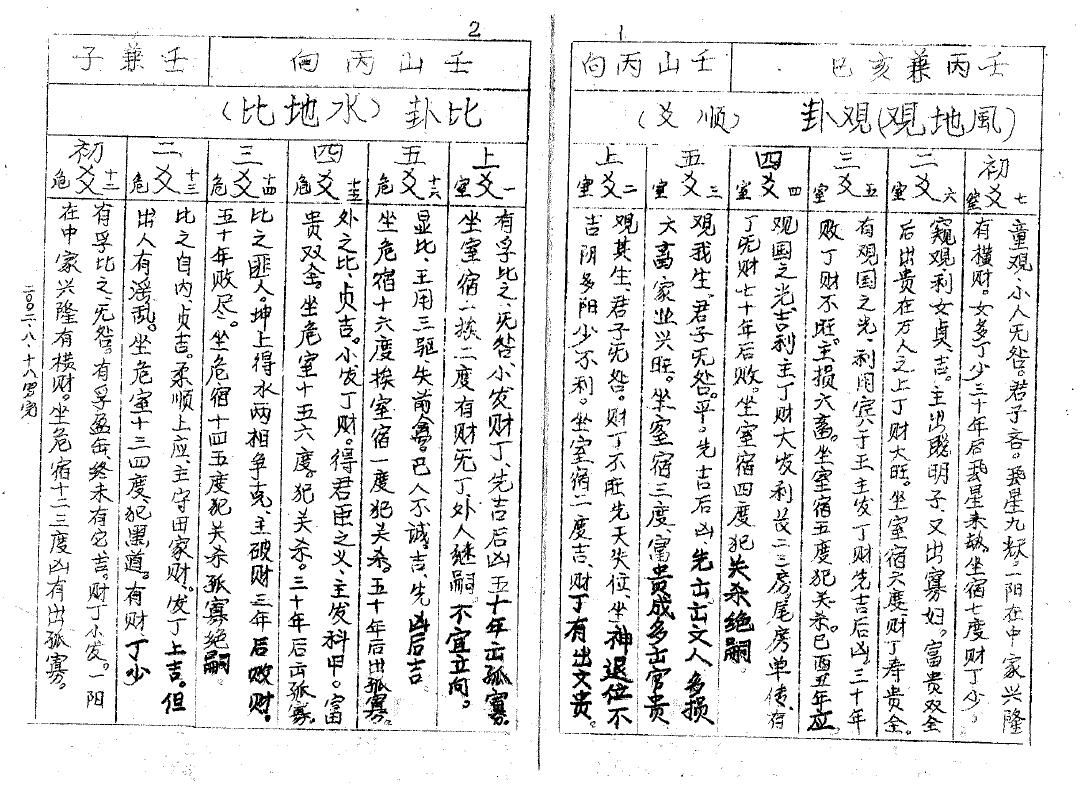 1
壬丙兼亥巳
壬山丙向
風地观(观卦)
(顺爻)
初爻 七 室
童观，小人无咎。君子吝。
一阳在中家兴隆
有横财。女多丁少三十年后
坐宿七度财丁少。
二爻 六 室
窥观利女贞、吉。主出聪明子、又出寡妇。富贵双全
后出贵在万人之上丁财大旺。坐室宿六度、财丁寿贵全。
三爻 五 室
有观国之光、利用宾于王、主发丁财先吉后凶。三十年
败丁财不旺。主损六畜。坐室宿五度犯关杀。巳酉丑年应。
四爻 四 室
观国之光、吉利主丁财大发利长二三房尾房单传、有
丁无财七十年后败。坐室宿四度犯关杀绝嗣
五爻 三 室
观我生、君子无咎。平。先吉后凶、先出出文人多损
六畜家业兴旺。坐室宿三度、富贵成多出官贵、
上爻 二 室
观其生、君子无咎。财丁不旺先天失位、坐神退位不
吉阴多阳少不利。坐室宿二度吉、财丁有出文贵。
2
壬山丙向
壬兼子
比卦(水地比)
上爻 一 室
有孚比之、无咎、小发财丁、先吉后凶五十年出孤寡
坐室宿一挨二度有财无丁外人继嗣不宜立向。
五爻 十六 危
显比、王用三驱失前禽。邑人不诫。吉、先凶后吉
坐危宿十六度挨室宿一度犯关杀。五十年后出孤寡。
四爻 十五 危
外之比、贞吉。小发丁财。得君臣之义、主发科甲。富
贵双全。坐危室十五六度。犯关杀。三十年后出孤寡。
三爻 十四 危
比之匪人。坤上得水两相争克、主破财三年后败财。
五十年败尽。坐危宿十四五度犯关杀孤寡绝嗣
二爻 十三 危
比之自内、贞吉。柔顺上应、主守田家财。发丁上吉。但
出人有淫乱。坐危室十三四度、犯黑道。有财丁少
初爻 十二 危
有孚比之、无咎。有孚盈缶、终未有它吉。财丁小发。一阳
在中家兴隆有横财。坐危宿十二三度凶有出孤寡。
二〇〇二.八.十八写完